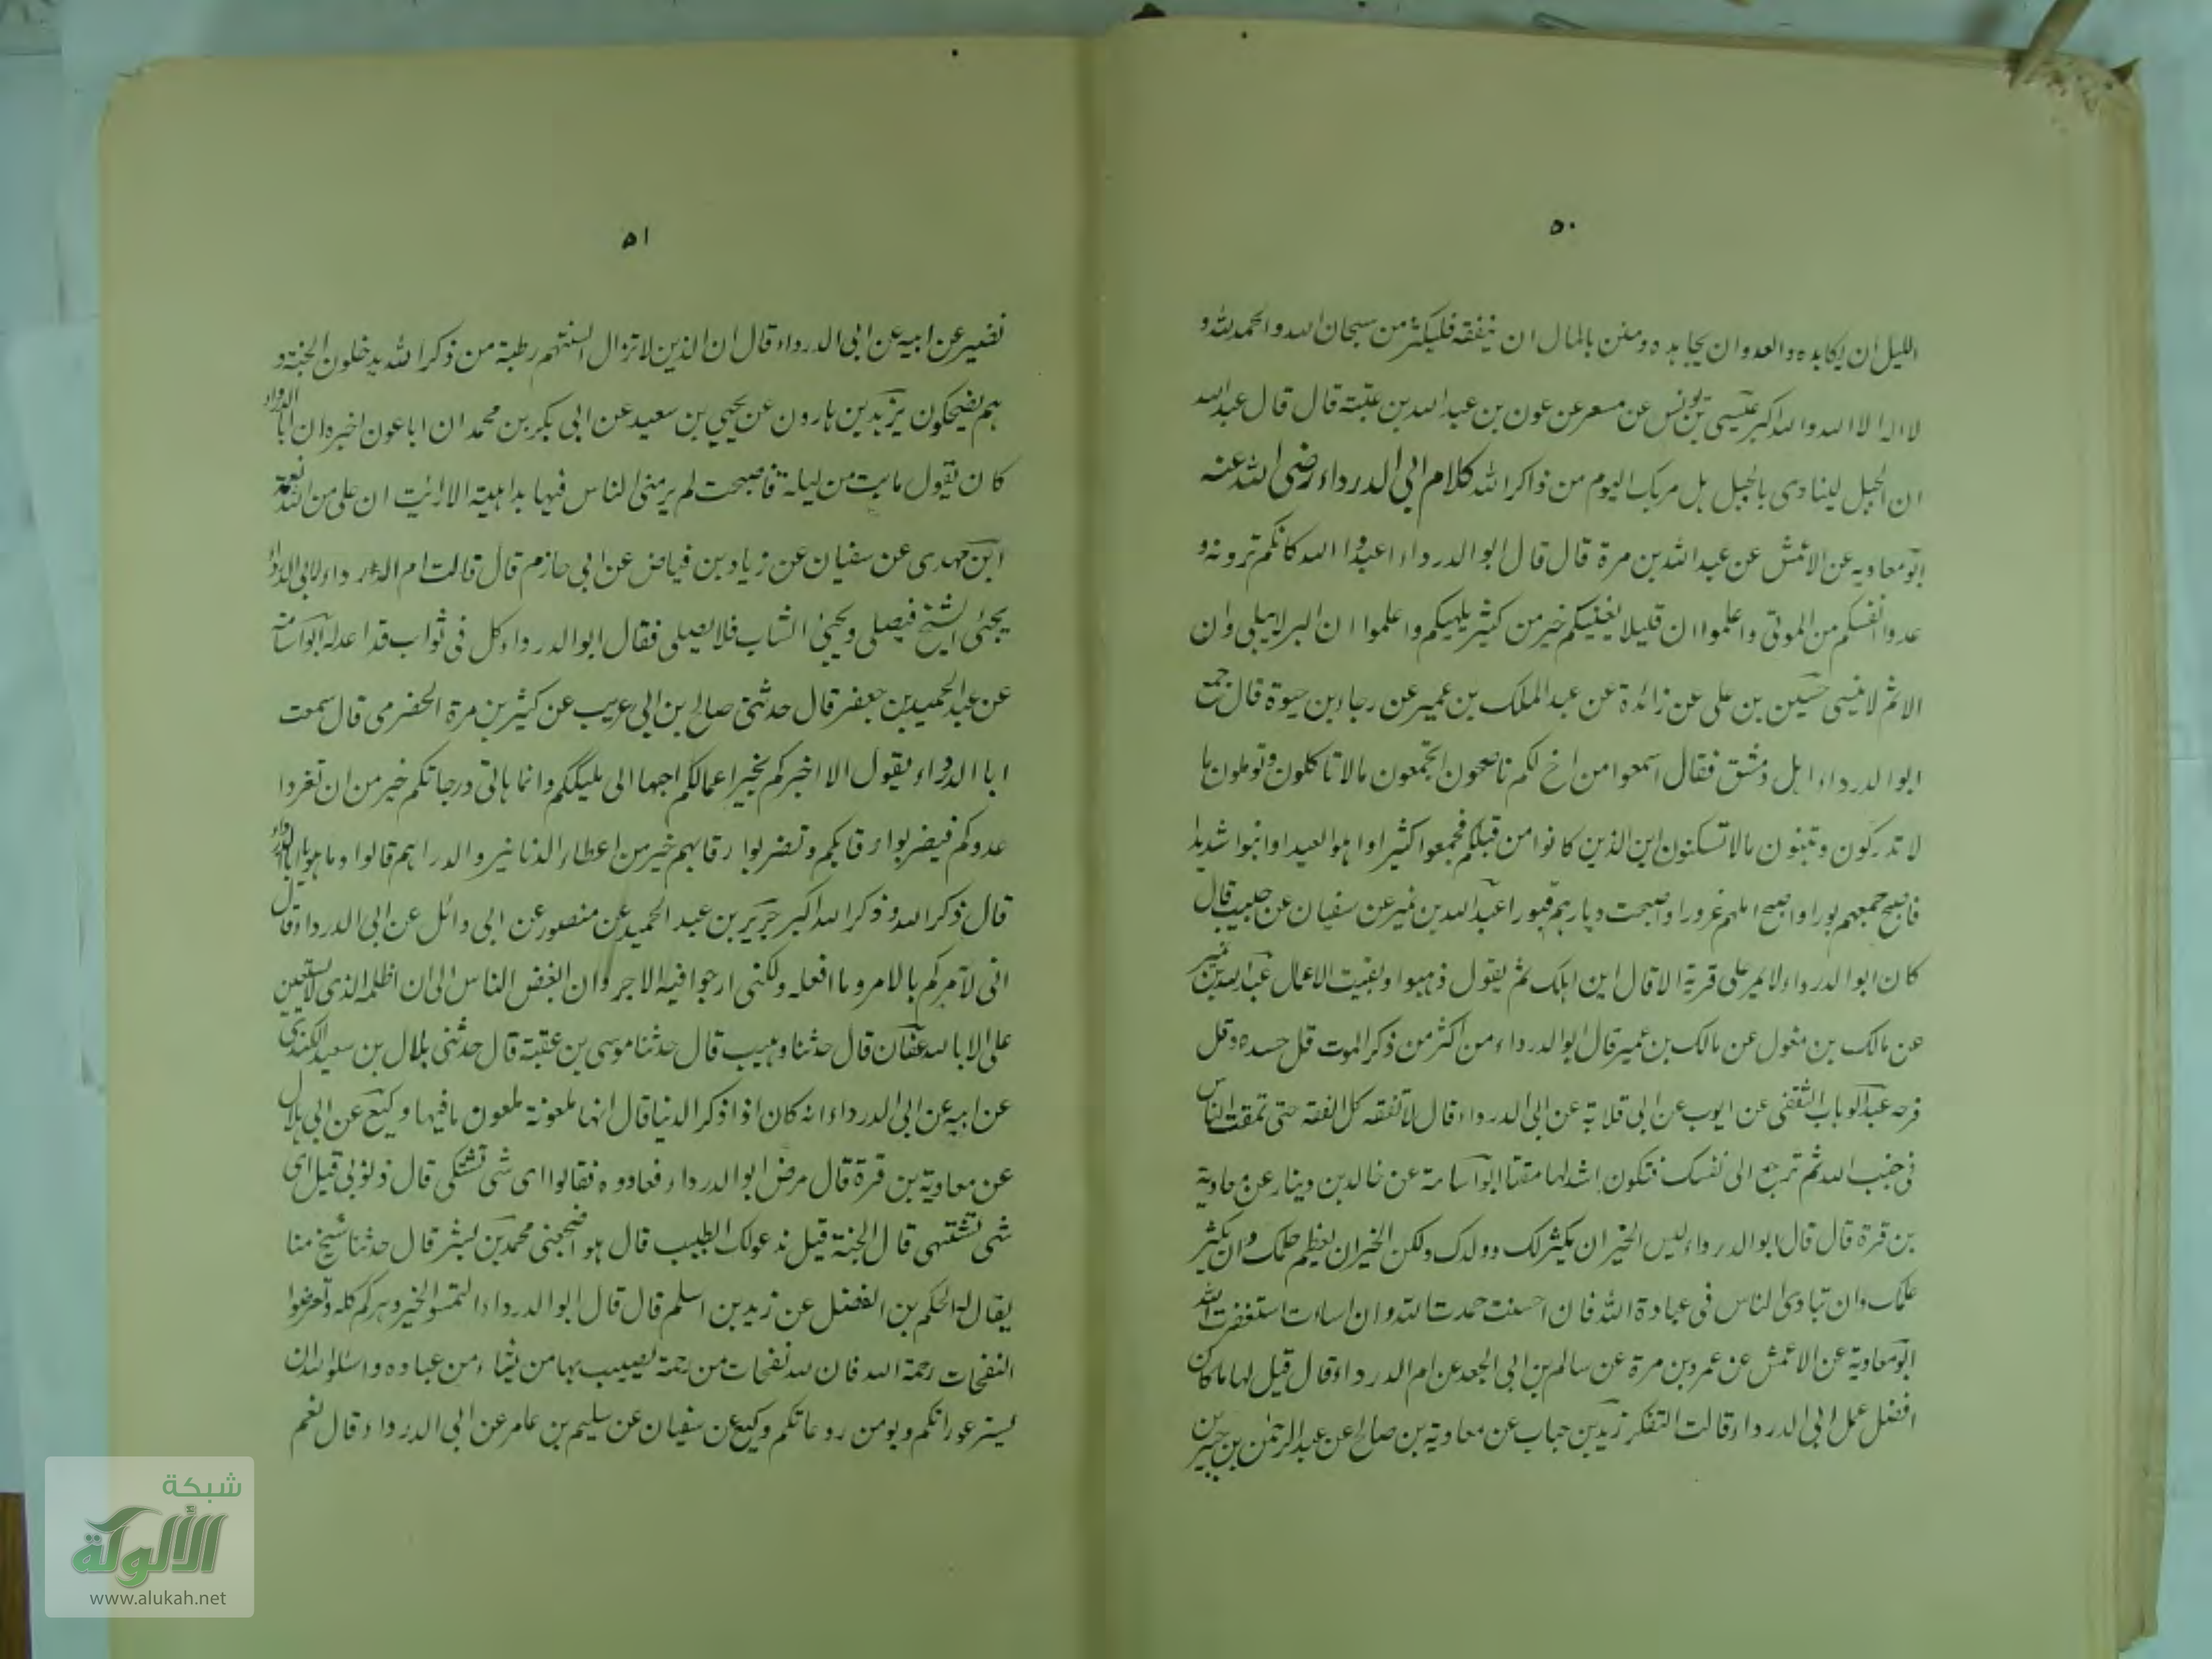 ٥٠
الليل ان يكابده والعدو ان يجاهده وضن بالمال ان ينفقه فليكثر من سبحان الله والحمد لله و
لا اله الا الله والله اكبر عيسى بن يونس عن مسعر عن عون بن عبد الله بن عتبة قال قال عبد الله
ان الجبل لينادى بالجبل هل مر بك اليوم من ذاكر الله كلام ابى الدرداء رضى الله عنه
ابو معاوية عن الاعمش عن عبد الله بن مرة قال قال ابو الدرداء اعبدوا الله كانكم ترونه و
عدوا انفسكم من الموتى واعلموا ان قليلا يغنيكم خير من كثير يلهيكم واعلموا ان البر لا يبلى وان
الاثم لا ينسى حسين بن على عن زائدة عن عبد الملك بن عمير عن رجاء بن حيوة قال جمع
ابو الدرداء اهل دمشق فقال اسمعوا من اخ لكم ناصح اتجمعون مالا تاكلون وتوملون ما
لا تدركون وتبنون مالا تسكنون اين الذين كانوا من قبلكم فجمعوا كثيرا واملوا بعيدا وبنوا شديدا
فاصبح جمعهم بورا واصبح املهم غرورا واصبحت ديارهم قبورا عبد الله بن نمير عن سفيان عن حبيب قال
كان ابو الدرداء لا يمر على قرية الا قال اين اهلك ثم يقول ذهبوا وبقيت الاعمال عبد الله بن نمير
عن مالك بن مغول عن مالك بن عمير قال ابو الدرداء من اكثر من ذكر الموت قل حسده وقل
فرحه عبد الوهاب الثقفى عن ايوب عن ابى قلابة عن ابى الدرداء قال لا تفقه كل الفقه حتى تمقت الناس
فى جنب الله ثم ترجع الى نفسك فتكون اشد لها مقتا ابو اسامة عن خالد بن دينار عن معاوية
بن قرة قال قال ابو الدرداء ليس الخير ان يكثر لك وولدك ولكن الخير ان يعظم حلمك وان يكثر
علمك وان تبادى الناس فى عبادة الله فان احسنت حمدت الله وان اسات استغفرت الله
ابو معاوية عن الاعمش عن عمرو بن مرة عن سالم بن ابى الجعد عن ام الدرداء قال قيل لها ما كان
افضل عمل ابى الدرداء قالت التفكر زيد بن حباب عن معاوية بن صالح عن عبد الرحمن بن جبير بن
٥١
نضير عن ابيه عن ابى الدرداء قال ان الذين لا تزال السنتهم رطبة من ذكر الله يدخلون الجنة و
هم يضحكون يزيد بن هارون عن يحيى بن سعيد عن ابى بكر بن محمد ان ابا عون اخبره ان ابا الدرداء
كان يقول ما بت من ليلة فاصبحت لم يرمنى الناس فيها بداهية الا رايت ان على من الله نعمة
ابن مهدى عن سفيان عن زياد بن فياض عن ابى حازم قال قالت ام الدرداء لابى الدرداء
يجئى الشيخ فيصلى ويجئى الشاب فلا يصلى فقال ابو الدرداء كل فى ثواب قد اعد له ابو اسامة
عن عبد الحميد بن جعفر قال حدثنى صالح بن ابى عريب عن كثير بن مرة الحضرمى قال سمعت
ابا الدرداء يقول الا اخبركم بخير اعمالكم احبها الى مليككم وانما هاتى درجاتكم خير من ان تغزوا
عدوكم فيضربوا رقابكم وتضربوا رقابهم خير من اعطاء الدنانير والدراهم قالوا وما هو يا ابا الدرداء
قال ذكر الله وذكر الله اكبر جرير بن عبد الحميد عن منصور عن ابى وائل عن ابى الدرداء قال
انى لآمركم بالامر وما افعله ولكنى ارجوا فيه الاجر وان ابغض الناس الى ان اظلمه الذى لا يستعين
على الا بالله عفان قال حدثنا وهيب قال حدثنا موسى بن عقبة قال حدثنى بلال بن سعيد الكندى
عن ابيه عن ابى الدرداء انه كان اذا ذكر الدنيا قال انها ملعونة ملعون ما فيها وكيع عن ابى هلال
عن معاوية بن قرة قال مرض ابو الدرداء فعادوه فقالوا اى شى تشتكى قال ذنوبى قيل اى
شى تشتهى قال الجنة قيل ندعو لك الطبيب قال هو اضجعنى محمد بن بشر قال حدثنا شيخ منا
يقال له الحكم بن الفضل عن زيد بن اسلم قال قال ابو الدرداء التمسوا الخير دهركم كله وتعرضوا
النفحات رحمة الله فان لله نفحات من رحمة يصيب بها من يشاء من عباده واسئلوا الله ان
يستر عوراتكم ويومن روعاتكم وكيع عن سفيان عن سليم بن عامر عن ابى الدرداء قال نعم
شبكة
الألوكة
www.alukah.net